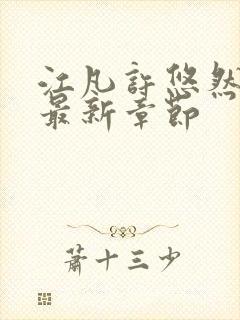 江凡許悠然
最新章節
蕭十三少